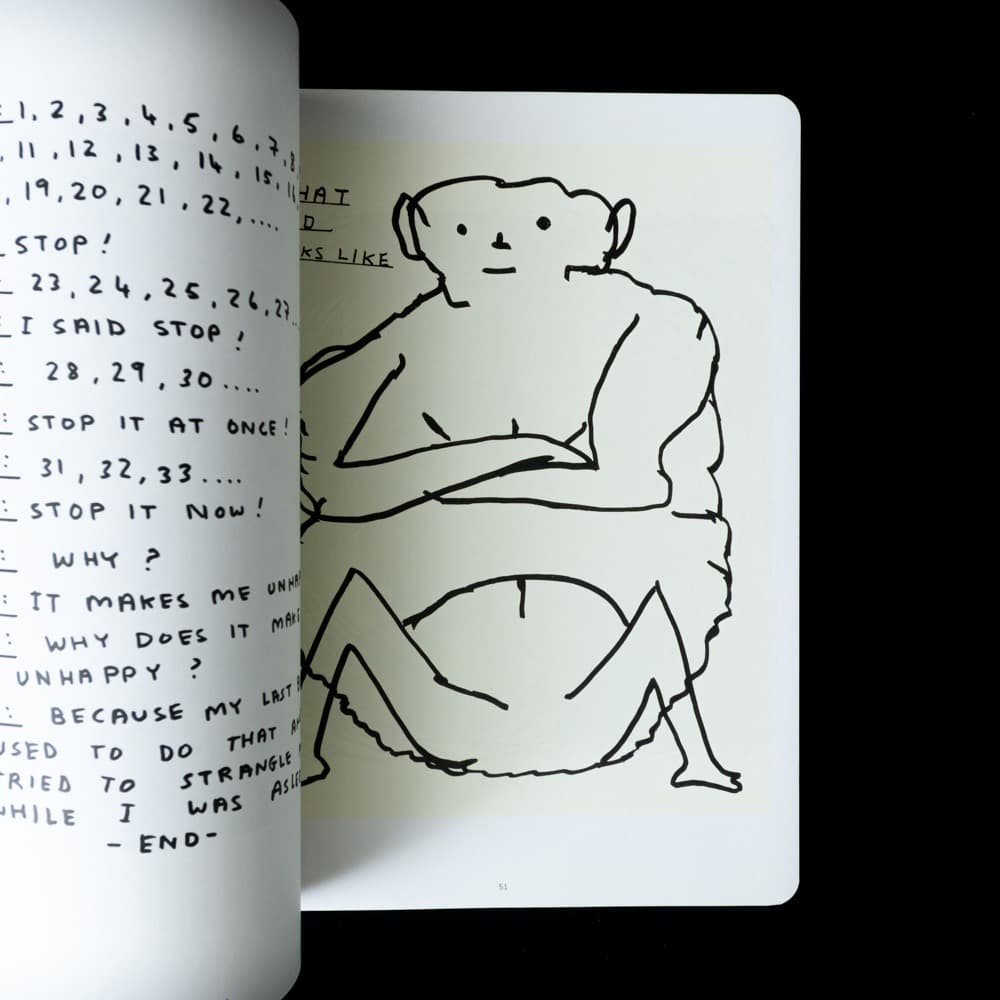 1, 2, 3, 4, 5, 6, 7, 8
, 11, 12, 13, 14, 15, 16
, 19, 20, 21, 22, ....
STOP!
23, 24, 25, 26, 27...
I SAID STOP!
: 28, 29, 30....
: STOP IT AT ONCE!
: 31, 32, 33....
: STOP IT NOW!
: WHY?
: IT MAKES ME
: WHY DOES IT
UNHAPPY?
: BECAUSE MY LAST
USED TO DO THAT
TRIED TO STRANGLE
WHILE I WAS
- END -
KS LIKE
51